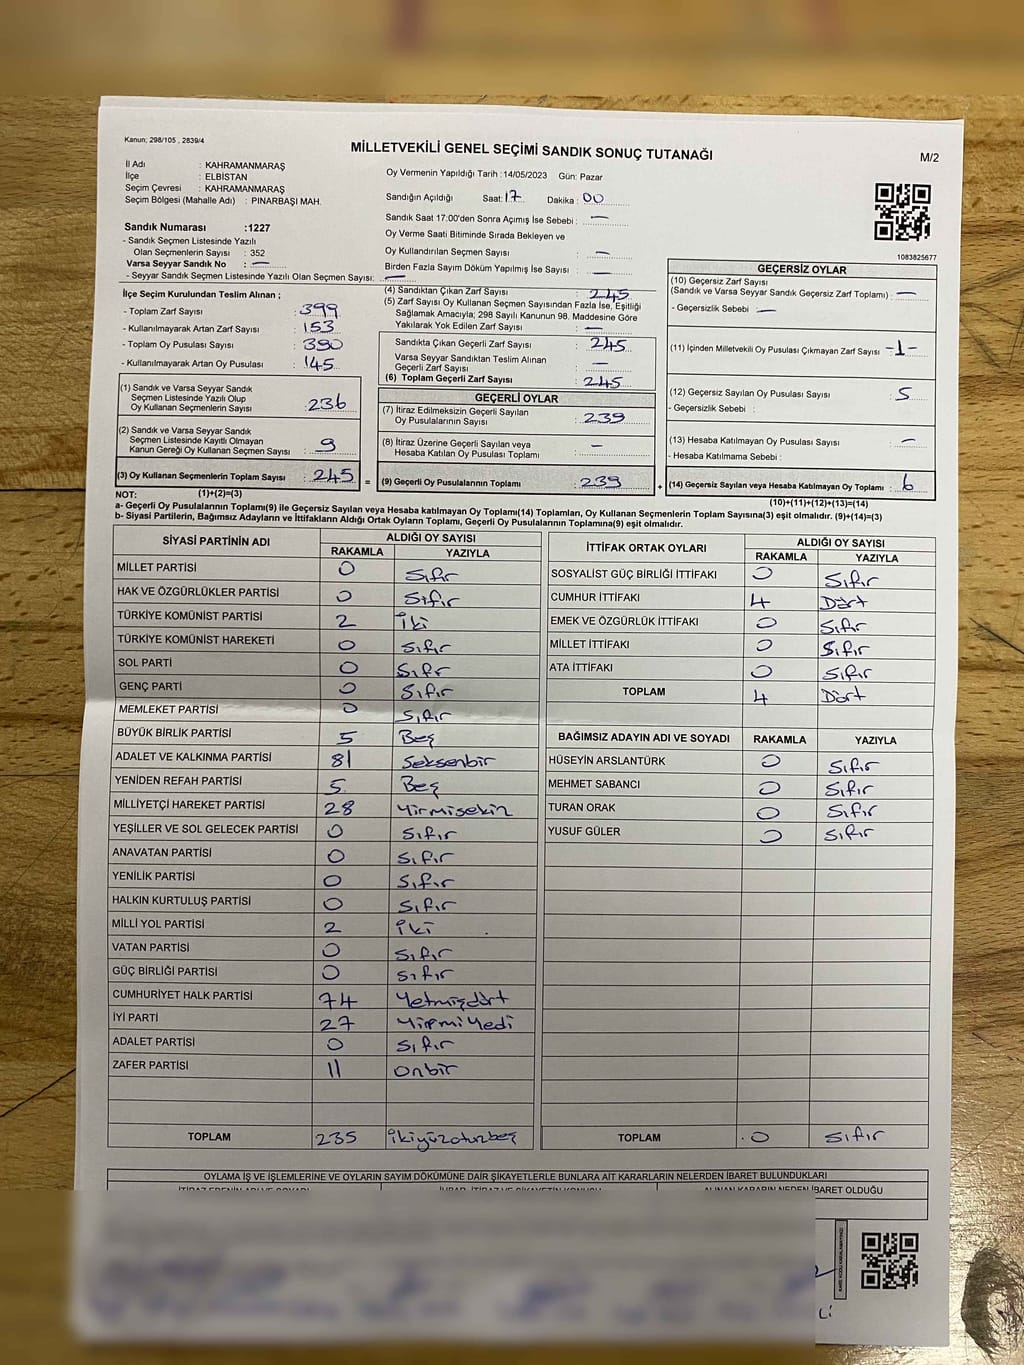 Kanun; 298/105 , 2839/4
MİLLETVEKİLİ GENEL SEÇİMİ SANDIK SONUÇ TUTANAĞI
M/2
İl Adı : KAHRAMANMARAŞ
İlçe : ELBİSTAN
Seçim Çevresi : KAHRAMANMARAŞ
Seçim Bölgesi (Mahalle Adı) : PINARBAŞI MAH.
Oy Vermenin Yapıldığı Tarih :14/05/2023 Gün: Pazar
Sandığın Açıldığı Saat: 17 Dakika : 00
Sandık Saat 17:00'den Sonra Açımış İse Sebebi : —
Oy Verme Saati Bitiminde Sırada Bekleyen ve
Oy Kullandırılan Seçmen Sayısı : —
Birden Fazla Sayım Döküm Yapılmış İse Sayısı : —
1083825677
Sandık Numarası :1227
- Sandık Seçmen Listesinde Yazılı
Olan Seçmenlerin Sayısı : 352
Varsa Seyyar Sandık No : —
- Seyyar Sandık Seçmen Listesinde Yazılı Olan Seçmen Sayısı: —
İlçe Seçim Kurulundan Teslim Alınan ;
- Toplam Zarf Sayısı : 399
- Kullanılmayarak Artan Zarf Sayısı : 153
- Toplam Oy Pusulası Sayısı : 390
- Kullanılmayarak Artan Oy Pusulası : 145
(1) Sandık ve Varsa Seyyar Sandık
Seçmen Listesinde Yazılı Olup
Oy Kullanan Seçmenlerin Sayısı : 236
(2) Sandık ve Varsa Seyyar Sandık
Seçmen Listesinde Kayıtlı Olmayan
Kanun Gereği Oy Kullanan Seçmen Sayısı : 9
(3) Oy Kullanan Seçmenlerin Toplam Sayısı : 245
(4) Sandıktan Çıkan Zarf Sayısı : 245
(5) Zarf Sayısı Oy Kullanan Seçmen Sayısından Fazla İse, Eşitliği
Sağlamak Amacıyla; 298 Sayılı Kanunun 98. Maddesine Göre
Yakılarak Yok Edilen Zarf Sayısı : —
Sandıkta Çıkan Geçerli Zarf Sayısı : 245
Varsa Seyyar Sandıktan Teslim Alınan
Geçerli Zarf Sayısı :
(6) Toplam Geçerli Zarf Sayısı : 245
GEÇERLİ OYLAR
(7) İtiraz Edilmeksizin Geçerli Sayılan
Oy Pusulalarının Sayısı : 239
(8) İtiraz Üzerine Geçerli Sayılan veya
Hesaba Katılan Oy Pusulası Toplamı : —
= (9) Geçerli Oy Pusulalarının Toplamı : 239 +
GEÇERSİZ OYLAR
(10) Geçersiz Zarf Sayısı
(Sandık ve Varsa Seyyar Sandık Geçersiz Zarf Toplamı) : —
- Geçersizlik Sebebi : —
(11) İçinden Milletvekili Oy Pusulası Çıkmayan Zarf Sayısı : -1-
(12) Geçersiz Sayılan Oy Pusulası Sayısı : 5
- Geçersizlik Sebebi :
(13) Hesaba Katılmayan Oy Pusulası Sayısı : —
- Hesaba Katılmama Sebebi :
(14) Geçersiz Sayılan veya Hesaba Katılmayan Oy Toplamı : 6
NOT: (1)+(2)=(3)
(10)+(11)+(12)+(13)=(14)
a- Geçerli Oy Pusulalarının Toplamı(9) ile Geçersiz Sayılan veya Hesaba katılmayan Oy Toplamı(14) Toplamları, Oy Kullanan Seçmenlerin Toplam Sayısına(3) eşit olmalıdır. (9)+(14)=(3)
b- Siyasi Partilerin, Bağımsız Adayların ve İttifakların Aldığı Ortak Oyların Toplamı, Geçerli Oy Pusulalarının Toplamına(9) eşit olmalıdır.
SİYASİ PARTİNİN ADI ALDIĞI OY SAYISI
RAKAMLA YAZIYLA
MİLLET PARTİSİ 0 Sıfır
HAK VE ÖZGÜRLÜKLER PARTİSİ 0 Sıfır
TÜRKİYE KOMÜNİST PARTİSİ 2 İki
TÜRKİYE KOMÜNİST HAREKETİ 0 Sıfır
SOL PARTİ 0 Sıfır
GENÇ PARTİ 0 Sıfır
MEMLEKET PARTİSİ 0 Sıfır
BÜYÜK BİRLİK PARTİSİ 5 Beş
ADALET VE KALKINMA PARTİSİ 81 Seksenbir
YENİDEN REFAH PARTİSİ 5 Beş
MİLLİYETÇİ HAREKET PARTİSİ 28 Yirmisekiz
YEŞİLLER VE SOL GELECEK PARTİSİ 0 Sıfır
ANAVATAN PARTİSİ 0 Sıfır
YENİLİK PARTİSİ 0 Sıfır
HALKIN KURTULUŞ PARTİSİ 0 Sıfır
MİLLİ YOL PARTİSİ 2 İki
VATAN PARTİSİ 0 Sıfır
GÜÇ BİRLİĞİ PARTİSİ 0 Sıfır
CUMHURİYET HALK PARTİSİ 74 Yetmişdört
İYİ PARTİ 27 YirmiYedi
ADALET PARTİSİ 0 Sıfır
ZAFER PARTİSİ 11 Onbir
TOPLAM 235 İkiyüzotuzbeş
İTTİFAK ORTAK OYLARI ALDIĞI OY SAYISI
RAKAMLA YAZIYLA
SOSYALİST GÜÇ BİRLİĞİ İTTİFAKI 0 Sıfır
CUMHUR İTTİFAKI 4 Dört
EMEK VE ÖZGÜRLÜK İTTİFAKI 0 Sıfır
MİLLET İTTİFAKI 0 Sıfır
ATA İTTİFAKI 0 Sıfır
TOPLAM 4 Dört
BAĞIMSIZ ADAYIN ADI VE SOYADI RAKAMLA YAZIYLA
HÜSEYİN ARSLANTÜRK 0 Sıfır
MEHMET SABANCI 0 Sıfır
TURAN ORAK 0 Sıfır
YUSUF GÜLER 0 Sıfır
TOPLAM 0 Sıfır
OYLAMA İŞ VE İŞLEMLERİNE VE OYLARIN SAYIM DÖKÜMÜNE DAİR ŞİKAYETLERLE BUNLARA AİT KARARLARIN NELERDEN İBARET BULUNDUKLARI
ALINAN KARARIN NEDEN İBARET OLDUĞU